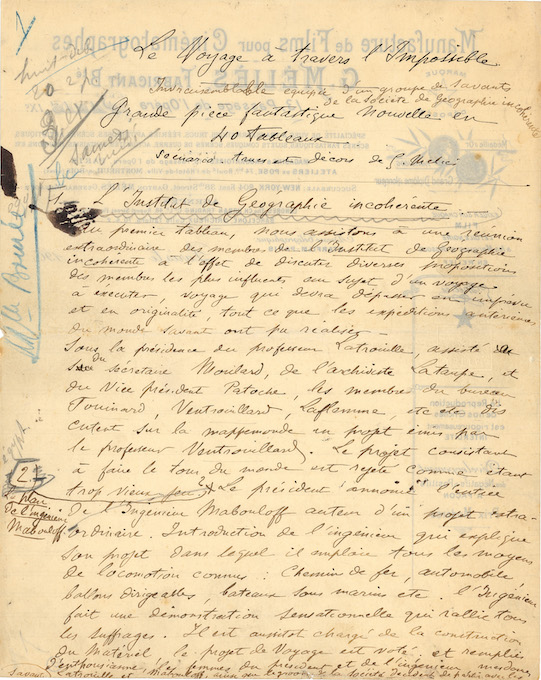 Le Voyage à travers l'Impossible
Invraisemblable équipée d'un groupe de savants
de la Société de Géographie incohérente
Grande pièce fantastique Nouvelle en
40 tableaux
scénario trucs et décors de G. Meliès
1. L'Institut de Géographie incohérente
Au premier tableau, nous assistons à une réunion
extraordinaire des membres de l'Institut de Géographie
incohérente à l'effet de discuter diverses propositions
des membres les plus influents au sujet d'un voyage
à exécuter, voyage qui devra dépasser en imprévu
et en originalité, tout ce que les expéditions antérieures
du monde savant ont pu réaliser.
Sous la présidence du professeur Latrouille, assisté
du secrétaire Moulard, de l'archiviste Lataupe, et
du Vice président Patoche, les membres du bureau
Tournard, Ventrouillard, Laflamme etc etc dis
cutent sur la mappemonde un projet émis par
le professeur Ventrouillard. Le projet consistant
à faire le tour du monde est rejeté comme étant
trop vieux jeu. Le président annonce l'entrée
2.
plan
de l'Ingénieur
Mabouloff
de l'Ingénieur Mabouloff auteur d'un projet extra-
ordinaire. Introduction de l'ingénieur qui explique
son projet dans lequel il emploie tous les moyens
de locomotion connus : Chemin de fer, automobile
ballons dirigeables, bateaux sous marins etc. l'Ingénieur
fait une démonstration sensationnelle qui rallie tous
les suffrages. Il est aussitôt chargé de la construction
du Matériel le projet de Voyage est voté et remplies
d'enthousiasme, les femmes du président et de l'ingénieur mesdames
Latrouille et Mabouloff, ainsi que le groom de la Société décident de partir avec les
savants
Manufacture de Films pour Cinématographes
G. MELIÈS, FABRICANT